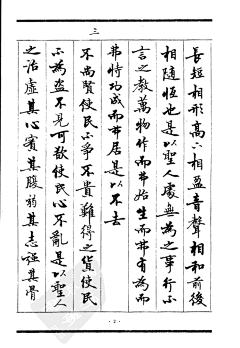 長短相形高下相盈音聲相和前後
相隨恆也是以聖人處無為之事行不
言之教萬物作而弗始生而弗有為而
弗恃功成而弗居是以不去
三
不尚賢使民不爭不貴難得之貨使民
不為盜不見可欲使民心不亂是以聖人
之治虛其心實其腹弱其志強其骨
- 2 -